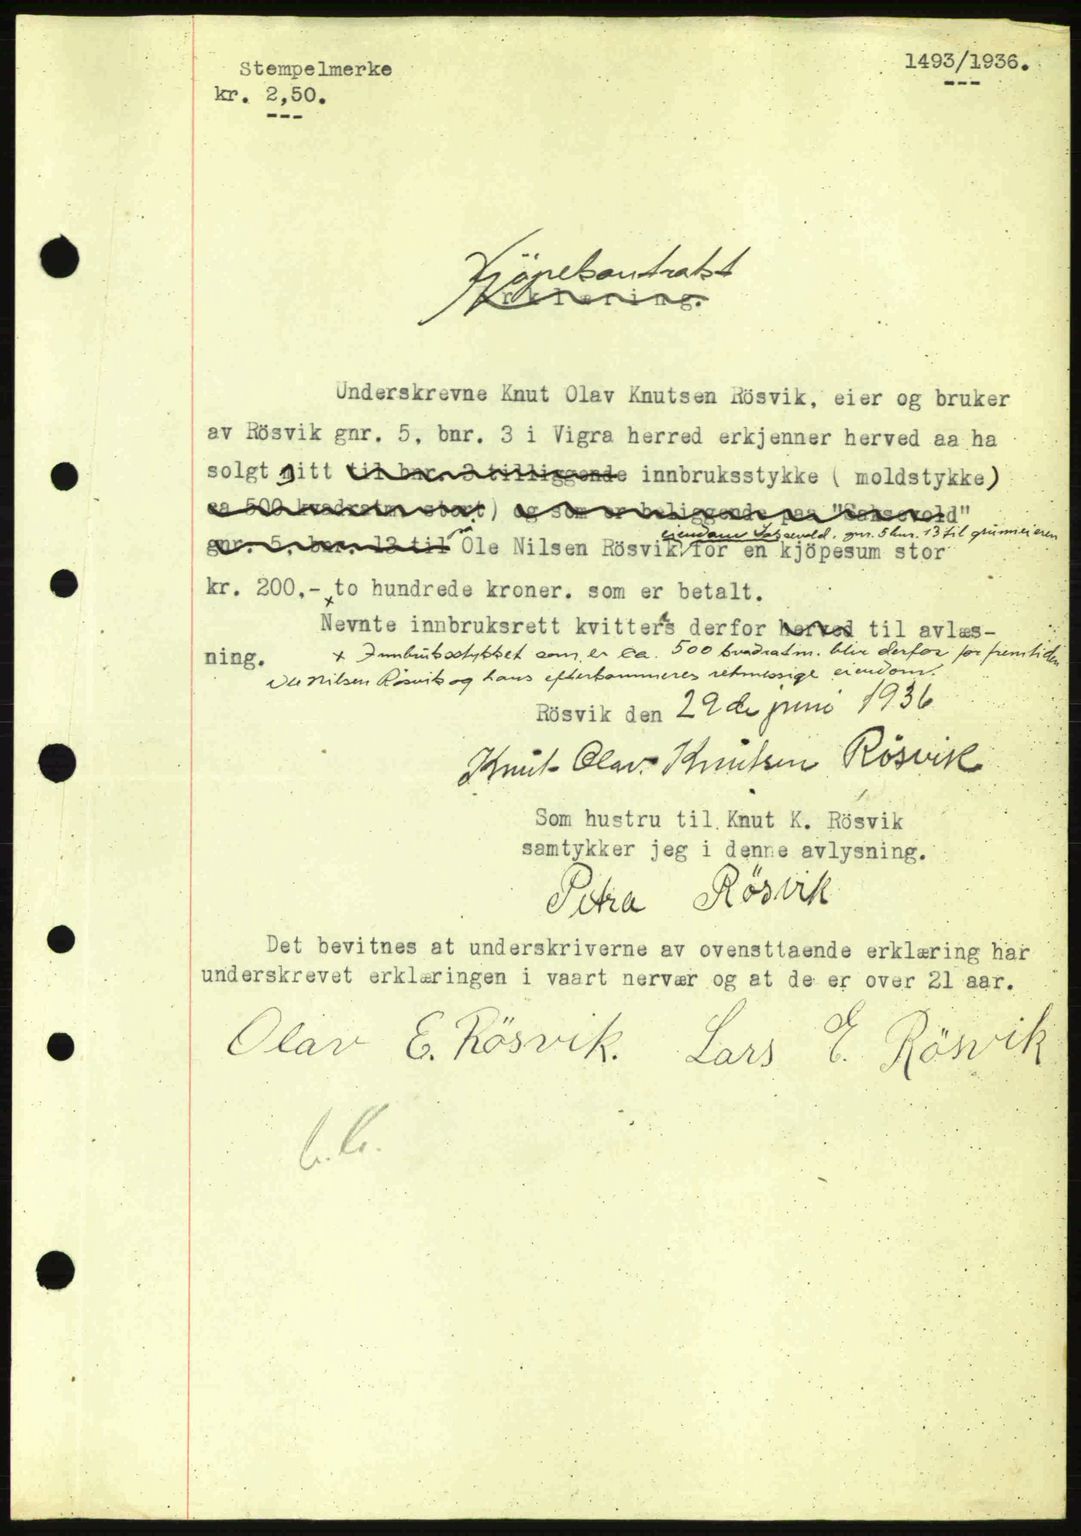 Stempelmerke
kr. 2,50.
1493/1936.
Kjöpekontrakt
Erklæring.
Underskrevne Knut Olav Knutsen Rösvik, eier og bruker
av Rösvik gnr. 5, bnr. 3 i Vigra herred erkjenner herved aa ha
solgt mitt til bnr. 3 tilliggende innbruksstykke ( moldstykke)
ca 500 kvadratm. stort) og som er beliggende paa "Saksevold"
eiendom Saksevold, gnr. 5 bnr. 13 til grunneieren
gnr. 5, bnr. 13 til paa Ole Nilsen Rösvik for en kjöpesum stor
kr. 200,- to hundrede kroner. som er betalt.
Nevnte innbruksrett kvitteres derfor herved til avlæs-
ning. x Innbruksstykket som er ca. 500 kvadratm. blir derfor for fremtiden
Ole Nilsen Rösvik og hans efterkommeres retmessige eiendom.
Rösvik den 29de juni 1936
Knut Olav Knutsen Rösvik
Som hustru til Knut K. Rösvik
samtykker jeg i denne avlysning.
Petra Rösvik
Det bevitnes at underskriverne av ovensttaende erklæring har
underskrevet erklæringen i vaart nervær og at de er over 21 aar.
Olav E. Rösvik. Lars E. Rösvik